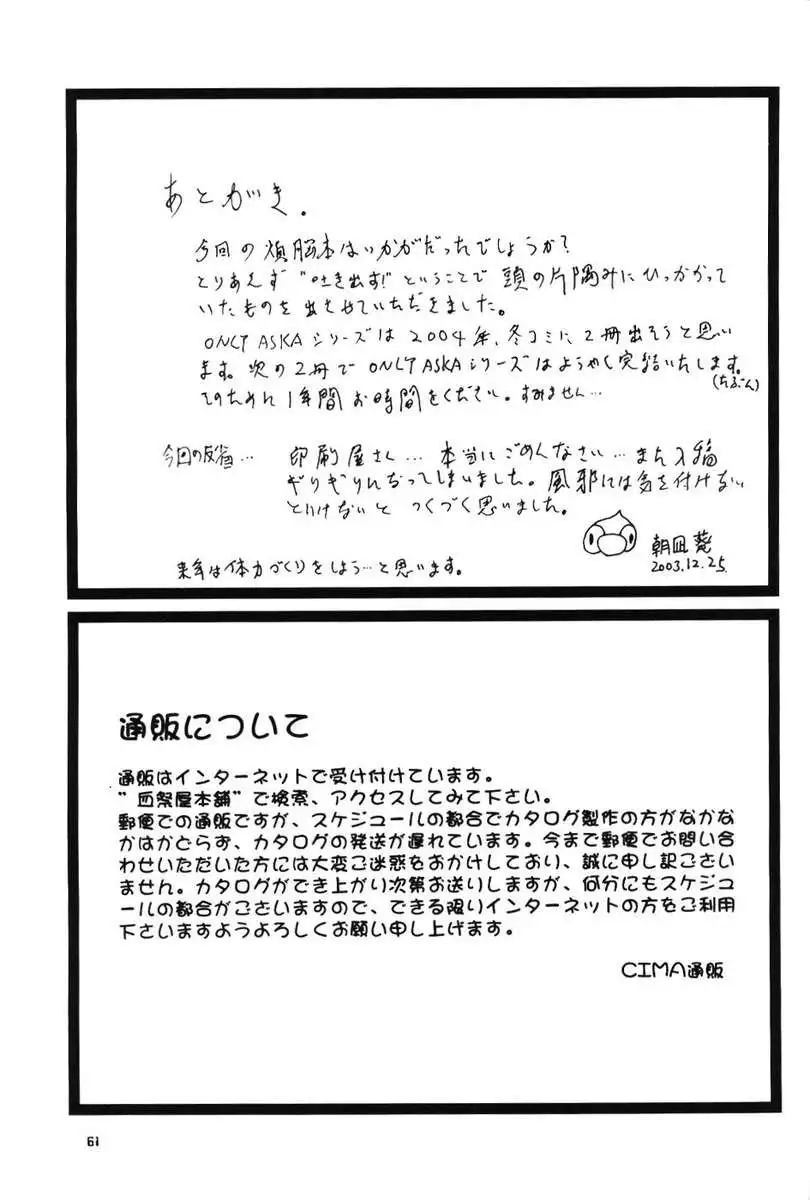 あとがき.
今回の煩脳本はいかがだったでしょうか?
とりあえず"吐き出す!"ということで頭の片隅みにひっかかって
いたものを出させていただきました。
ONLY ASKAシリーズは2004年、冬コミに2冊出そうと思い
ます。次の2冊でONLY ASKAシリーズはようやく完結いたします。
(たぶん)
そのために1年間お時間をください。すみません…
今回の反省… 印刷屋さん…本当にごめんなさい…また入稿
ギリギリになってしまいました。風邪には気を付けない
といけないと つくづく思いました。
来年は体力づくりをしよう…と思います。
朝凪葵
2003.12.25
通販について
通販はインターネットで受け付けています。
"血祭屋本舗"で検索、アクセスしてみて下さい。
郵便での通販ですが、スケジュールの都合でカタログ製作の方がなかな
かはかどらず、カタログの発送が遅れています。今まで郵便でお問い合
わせいただいた方には大変ご迷惑をおかけしており、誠に申し訳ござい
ません。カタログができ上がり次第お送りしますが、何分にもスケジュ
ールの都合がございますので、できる限りインターネットの方をご利用
下さいますようよろしくお願い申し上げます。
CIMA通販
61